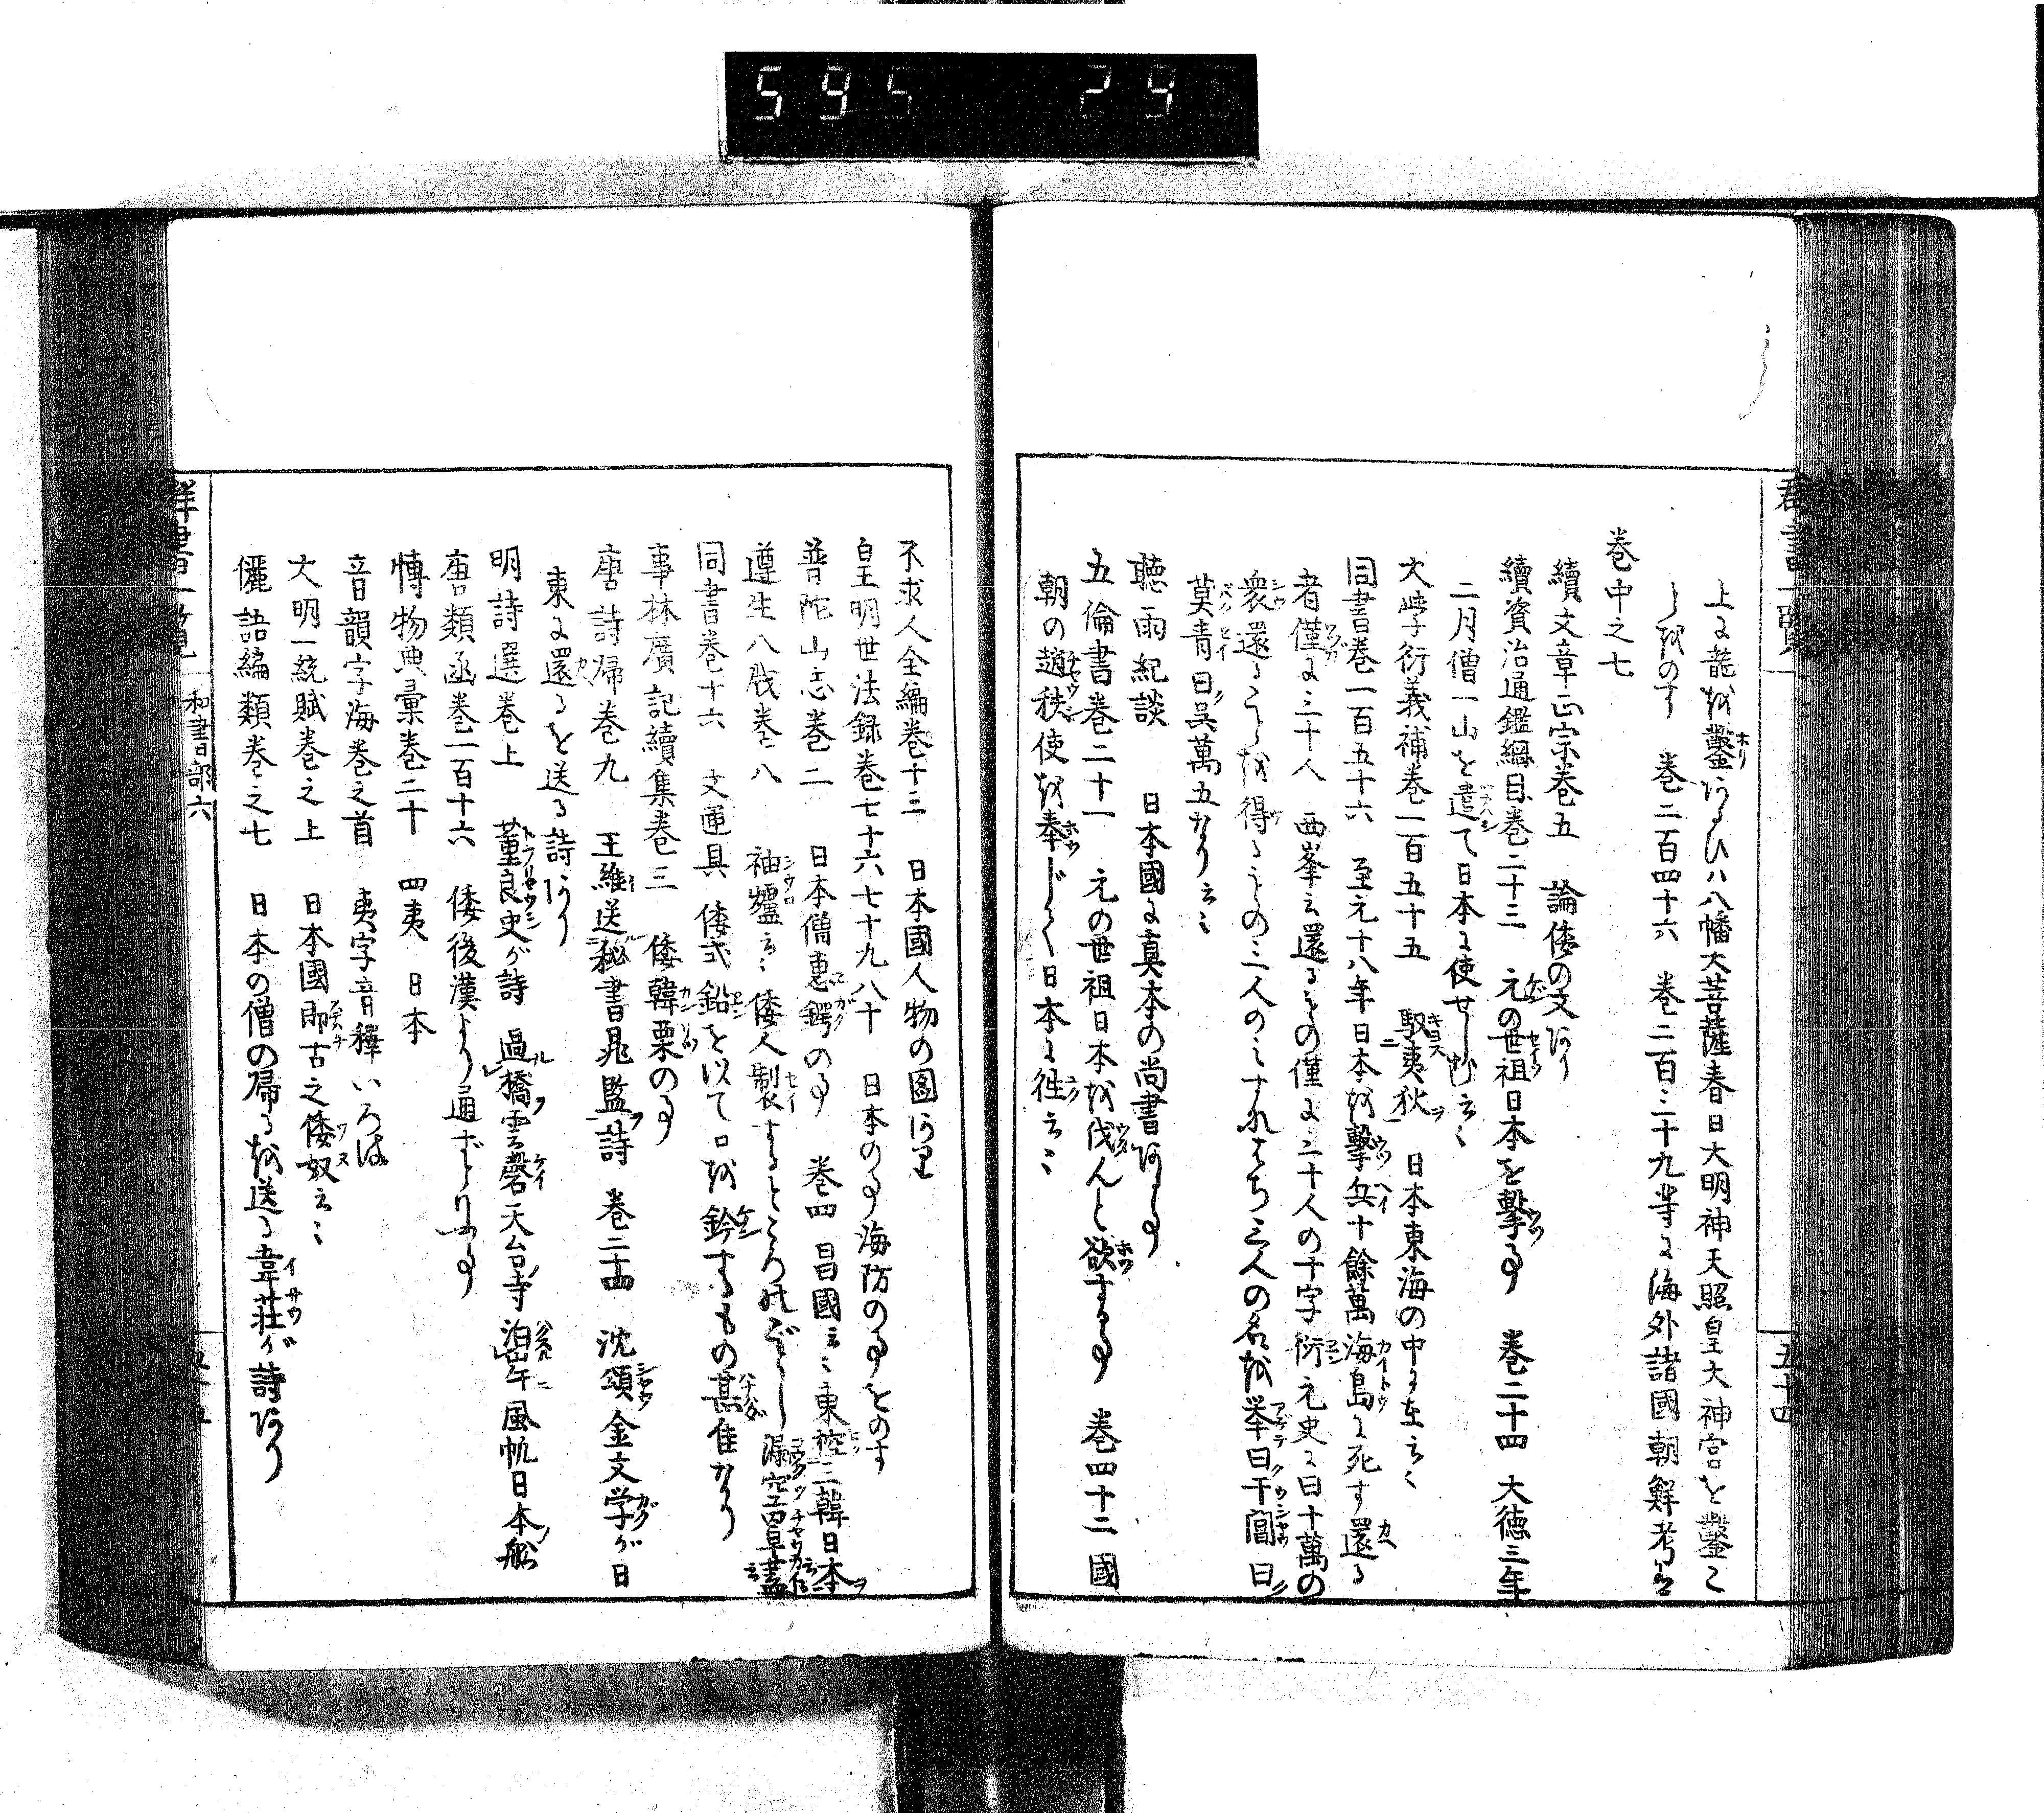 595 29
群書一覧
五十四
上に龍を鑿あるひハ八幡大菩薩春日大明神天照皇大神宮を鑿こ
とをのす 巻二百四十六 巻二百三十九等に海外諸國朝鮮考
巻中之七
續文章正宗巻五 論倭の文あり
續資治通鑑綱目巻二十三 元の世祖日本を撃事 巻二十四 大徳三年
二月僧一山を遣て日本に使せしむ云々
大学衍義補巻一百五十五 馭夷狄 日本東海の中に在云々
同書巻一百五十六 至元十八年日本を撃兵十餘萬海島に死す還る
者僅に三十人 西峯云還るもの僅に三十人の十字衍元史に曰十萬の
衆還ることを得るもの三人のミすなはち三人の名を举曰干閶曰
莫青曰呉萬五なり云々
聴雨紀談 日本國に真本の尚書ある事
五倫書巻二十一 元の世祖日本を伐んと欲する事 巻四十二 國
朝の趙秩使を奉じて日本に徃云々
不求人全編巻十三 日本國人物の図あり
皇明世法録巻七十六七十九八十 日本の事海防の事をのす
普陀山志巻二 日本僧恵鍔の事 巻四 昌國云々東控三韓日本
遵生八牋巻八 袖爐云々倭人製するところのごとし漏空罩蓋云々
同書巻十六 文匣具 倭式鉛を以て口を鈐するもの甚佳なり
事林廣記續集巻三 倭韓栗の事
唐詩帰巻九 王維送秘書晁監詩 巻二十四 沈頌金文学が日
東に還るを送る詩あり
明詩選巻上 董良史が詩 過橋雲磬天台寺泊岸風帆日本船
唐類函巻一百十六 倭後漢より通ずといふ事
博物典彙巻二十 四夷 日本
音韻字海巻之首 夷字音釋いろは
大明一統賦巻之上 日本國即古之倭奴云々
儷語編類巻之七 日本の僧の帰るを送る韋荘が詩あり
群書一覧 和書部六